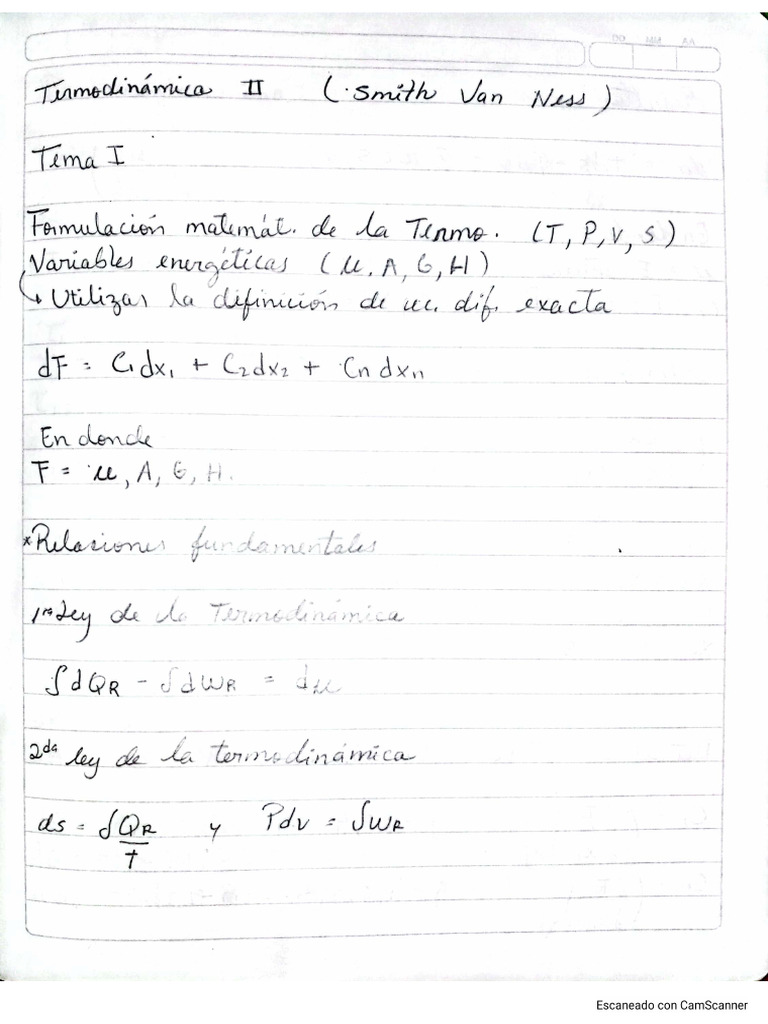 DD MM AA
Termodinámica II (Smith Van Ness)
Tema I
Formulación matemát. de la Termo. (T, P, V, S)
Variables energéticas (u, A, G, H)
↳ Utilizar la definición de ec. dif. exacta
dF = C₁dx₁ + C₂dx₂ + Cn dxn
En donde
F = u, A, G, H.
*Relaciones fundamentales
1ra Ley de la Termodinámica
∫dQR - ∫dWR = du
2da ley de la termodinámica
ds = ∫QR/T y Pdv = ∫WR
Escaneado con CamScanner